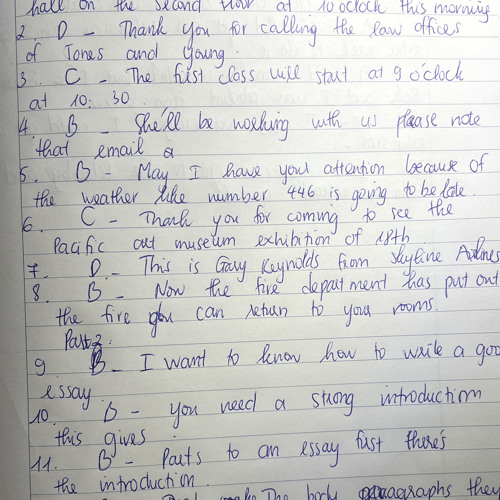 hall on the second floor at 10 oclock this morning
2. D - Thank you for calling the law offices
of Jones and Young.
3. C - The first class will start at 9 o'clock
at 10:30.
4. B - She'll be working with us please note
that email a
5. B - May I have your attention because of
the weather like number 446 is going to be late.
6. C - Thank you for coming to see the
Pacific art museum exhibition of 18th
7. D. - This is Gary Reynolds from Skyline Airlines
8. B - Now the fire department has put out
the fire you can return to your rooms
Part 2:
9 B - I want to know how to write a goo
essay.
10. B - You need a strong introduction
this gives
11. B - Parts to an essay first there's
the introduction.
make The body paragraphs they